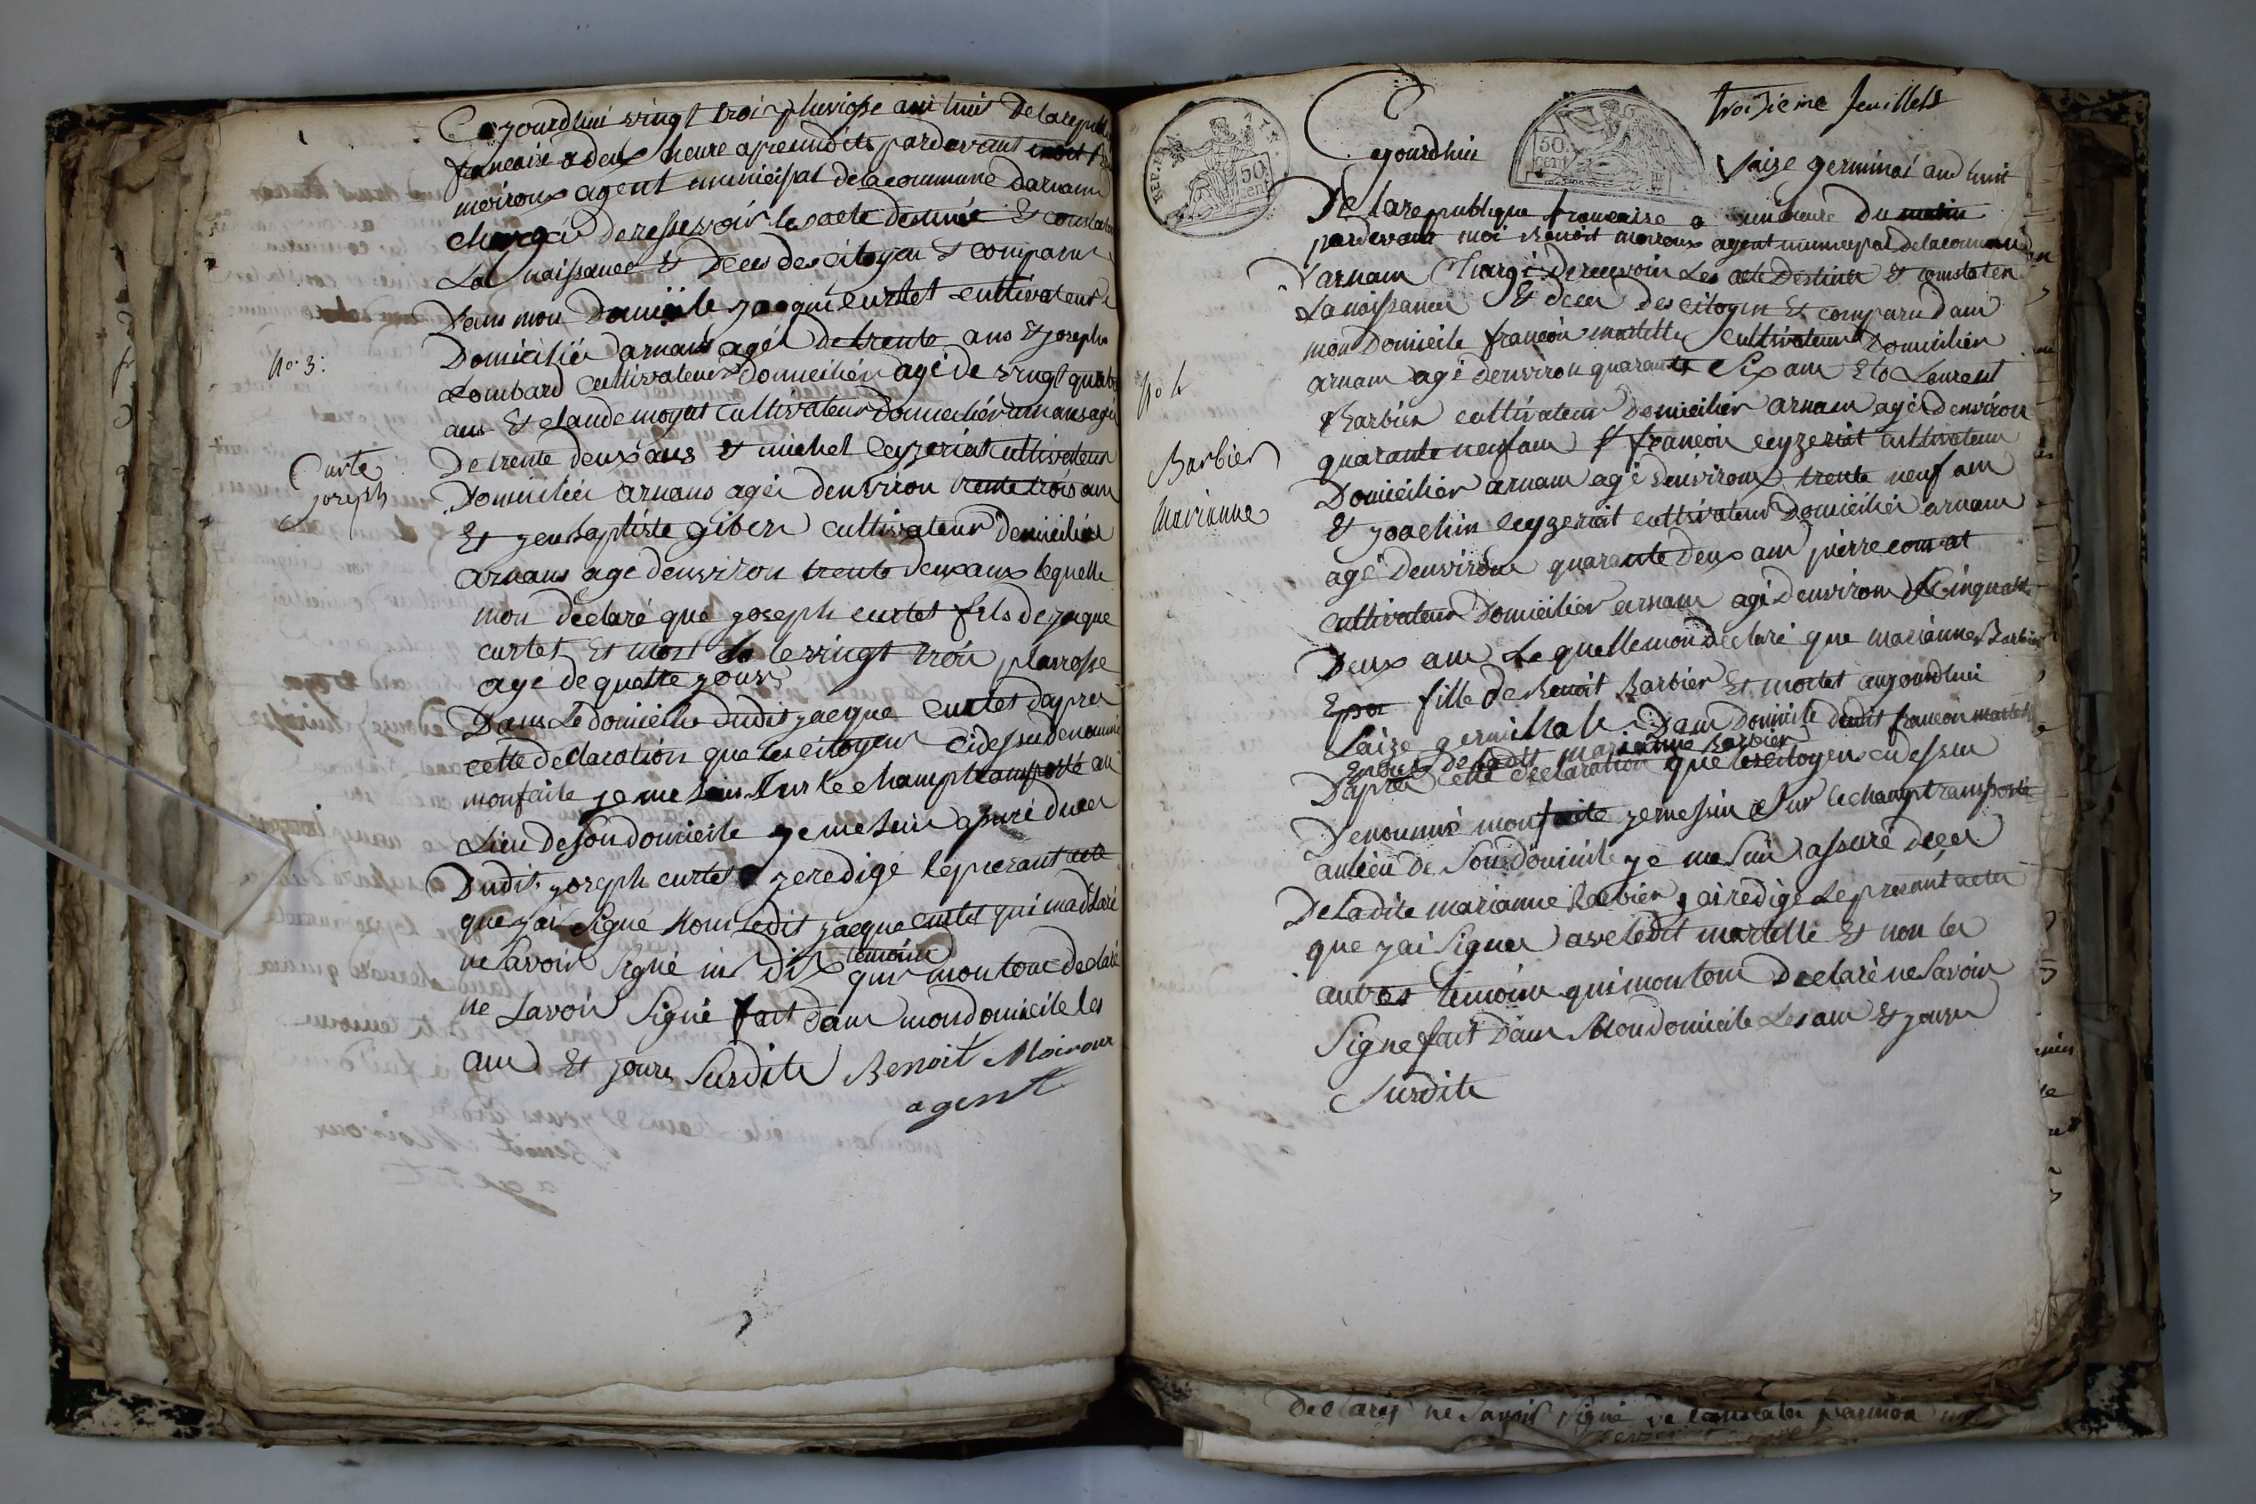 Cejourdhui vingt troi pluviosse ant huit De la republi
francaise a deux heure apremidits pardevant
moiroux agent municipal delacommune Darnam
chargé deressevoir lesacte destiné Et constater
La naissance Et Deces des citoyen Et comparu
Dans mon Domicile jacque curtet cultivateur
Domicilié arnans agé de trente ans Et joseph
Lombard cultivateur Domicilier agé de vingt quatre
ans Et claude moyat cultivateur Domicilier arnans agé
De trente deux ans Et michel ceyzeriat cultivateur
Domicilié arnans agé denviron trente trois ans
Et jenbaptiste giber cultivateur domicilier
arnans age denviron trente deux ans lequelle
mon déclaré que joseph curtet fils de jacque
curtet Et mort le vingt troi pluviosse
age de quatte jours
Dans Le domicille dudit jacque curtet dapres
cette declaration que les citoyens cidessu denommé
monfaite je me suis sur le champ transporté au
Lieu De son domicile je me suis assuré duces
Dudit joseph curtet jeredigé le presant acte
que jai signe nom ledit jacque curtet qui madclaré
ne savoir signé ni Dix temoins qui mon tous declaré
ne savoir signé fait Dans mondomicile les
ans Et jours Surdite Benoit Moiroux
agent
No. 3:
Curte
joseph
troisieme feuillets
REP. FRA.
50 cent
50 cent
Cejourdhui saize germinal ans huit
De la republique francaise a une heure du matin
pardevant moi Benoit moiroux agent municipal delacommune
Darnam Chargé derecevoir Les acte Destiner Et constater
La naissance Et deces des citoyen Et comparu dans
mon Domicile francois martelle cultivateur Domicilier
arnam agé denviron quarante Six ans Et Laurent
Barbier cultivateur Domicilier arnam agé denviron
quarante neuf ans francois ceyzeriat cultivateur
Domicilier arnam agé denviron trente neuf ans
Et joachin ceyzeriat cultivateur Domicilier arnam
agé denviron quarante deux ans pierre comat
cultivateur Domicilier arnam agé denviron Cinquante
Deux ans Lequelle mon déclaré que marianne Barbier
fille de Benoit Barbier Et mortet aujourdhui
saize germinale Dans Domicile dudit francois martelle
Epous De ladit marianne Barbier
Dapres cette declaration que les citoyen cidessu
Denommé monfaite je me suis Sur le champ transporté
au lieu De Son domicile je me suis assuré deces
De ladite marianne Barbier jai redigé Le presant acte
que jai Signer avec ledit martelle Et non les
autres temoins qui mon tous Declaré ne Savoir
Signe fait Dans Mon domicile Les ans Et jours
Surdite
No 4
Barbier
Marianne
Declarez ne Savoir signe